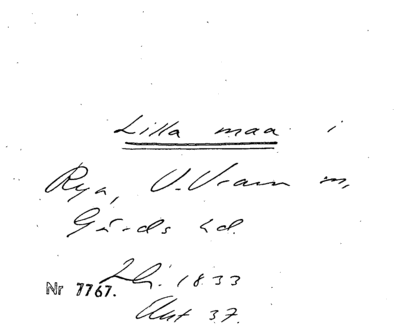 Lilla maa i
Rya, V. Vram m,
Gärds hd.
1833
Nr 7767.
Akt 37.